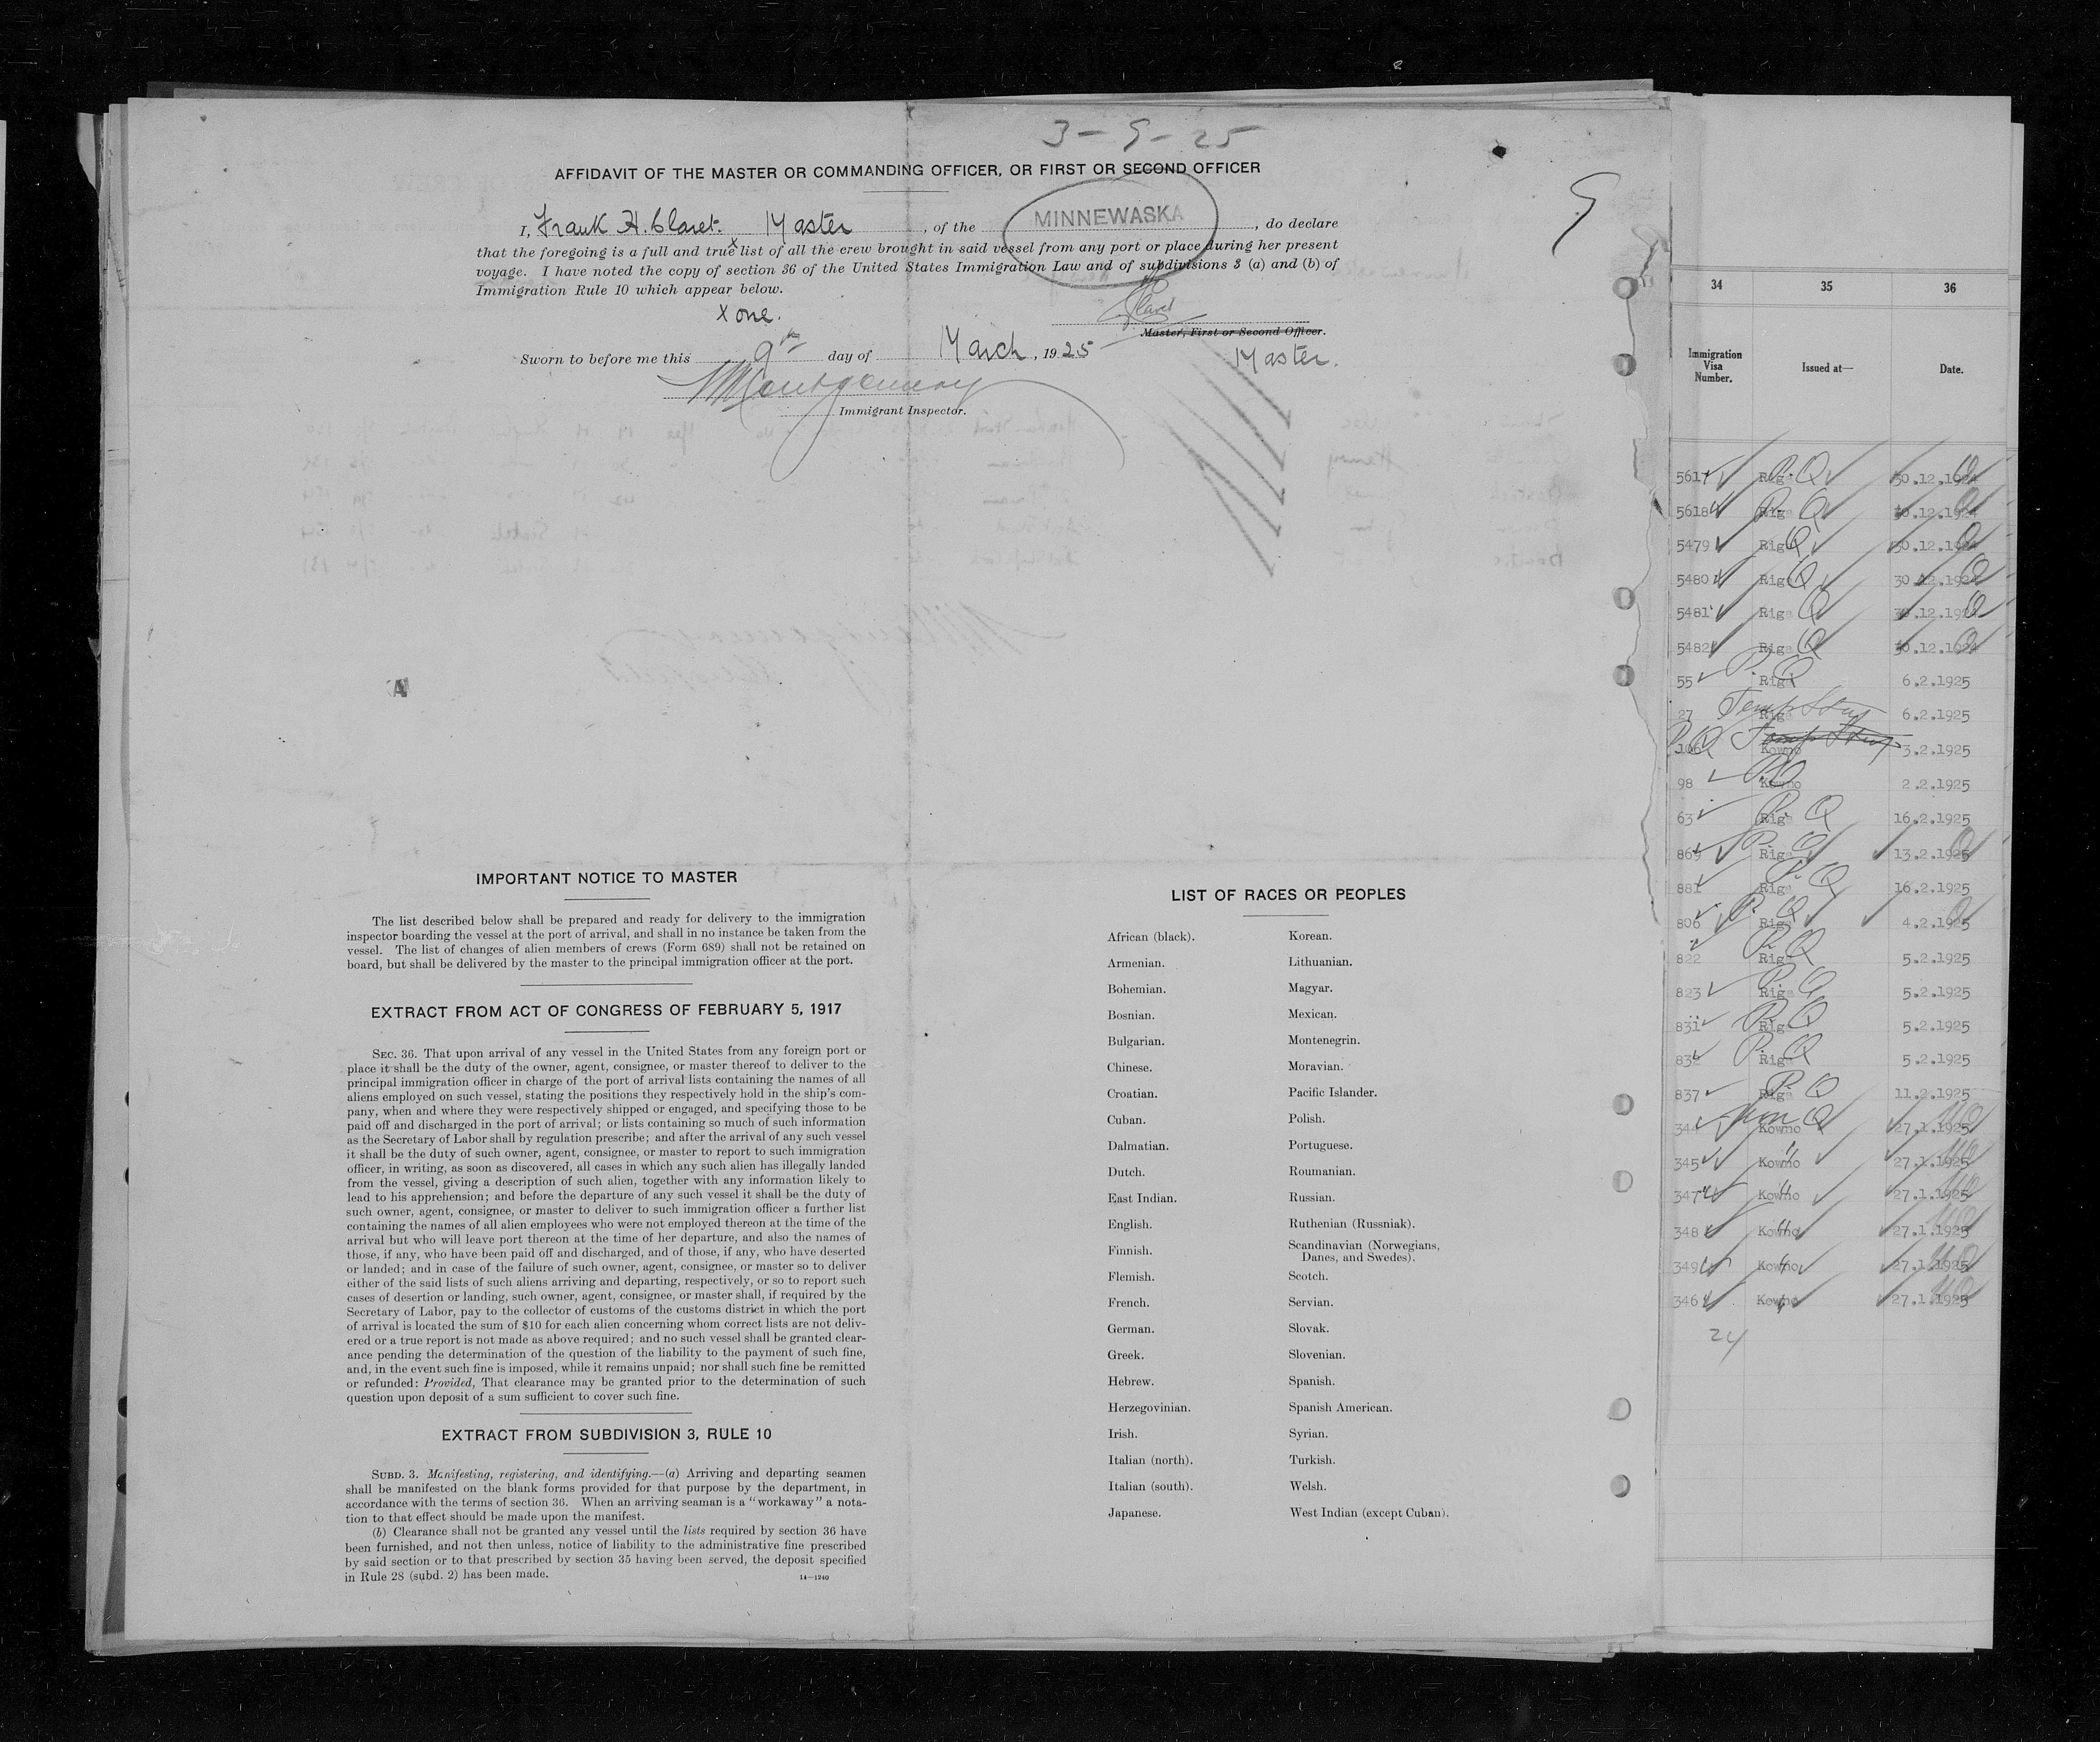 3-9-25
AFFIDAVIT OF THE MASTER OR COMMANDING OFFICER, OR FIRST OR SECOND OFFICER
I, Frank H. Claret. Master, of the MINNEWASKA, do declare
that the foregoing is a full and true x list of all the crew brought in said vessel from any port or place during her present
voyage. I have noted the copy of section 36 of the United States Immigration Law and of subdivisions 3 (a) and (b) of
Immigration Rule 10 which appear below.
x one.
Claret
Master, First or Second Officer.
Sworn to before me this 9th day of March, 1925
Master.
Montgomery
Immigrant Inspector.
IMPORTANT NOTICE TO MASTER
The list described below shall be prepared and ready for delivery to the immigration
inspector boarding the vessel at the port of arrival, and shall in no instance be taken from the
vessel. The list of changes of alien members of crews (Form 689) shall not be retained on
board, but shall be delivered by the master to the principal immigration officer at the port.
EXTRACT FROM ACT OF CONGRESS OF FEBRUARY 5, 1917
SEC. 36. That upon arrival of any vessel in the United States from any foreign port or
place it shall be the duty of the owner, agent, consignee, or master thereof to deliver to the
principal immigration officer in charge of the port of arrival lists containing the names of all
aliens employed on such vessel, stating the positions they respectively hold in the ship's com-
pany, when and where they were respectively shipped or engaged, and specifying those to be
paid off and discharged in the port of arrival; or lists containing so much of such information
as the Secretary of Labor shall by regulation prescribe; and after the arrival of any such vessel
it shall be the duty of such owner, agent, consignee, or master to report to such immigration
officer, in writing, as soon as discovered, all cases in which any such alien has illegally landed
from the vessel, giving a description of such alien, together with any information likely to
lead to his apprehension; and before the departure of any such vessel it shall be the duty of
such owner, agent, consignee, or master to deliver to such immigration officer a further list
containing the names of all alien employees who were not employed thereon at the time of the
arrival but who will leave port thereon at the time of her departure, and also the names of
those, if any, who have been paid off and discharged, and of those, if any, who have deserted
or landed; and in case of the failure of such owner, agent, consignee, or master so to deliver
either of the said lists of such aliens arriving and departing, respectively, or so to report such
cases of desertion or landing, such owner, agent, consignee, or master shall, if required by the
Secretary of Labor, pay to the collector of customs of the customs district in which the port
of arrival is located the sum of $10 for each alien concerning whom correct lists are not deliv-
ered or a true report is not made as above required; and no such vessel shall be granted clear-
ance pending the determination of the question of the liability to the payment of such fine,
and, in the event such fine is imposed, while it remains unpaid; nor shall such fine be remitted
or refunded: Provided, That clearance may be granted prior to the determination of such
question upon deposit of a sum sufficient to cover such fine.
EXTRACT FROM SUBDIVISION 3, RULE 10
SUBD. 3. Manifesting, registering, and identifying.—(a) Arriving and departing seamen
shall be manifested on the blank forms provided for that purpose by the department, in
accordance with the terms of section 36. When an arriving seaman is a "workaway" a nota-
tion to that effect should be made upon the manifest.
(b) Clearance shall not be granted any vessel until the lists required by section 36 have
been furnished, and not then unless, notice of liability to the administrative fine prescribed
by said section or to that prescribed by section 35 having been served, the deposit specified
in Rule 28 (subd. 2) has been made.
14—1240
LIST OF RACES OR PEOPLES
African (black). Korean.
Armenian. Lithuanian.
Bohemian. Magyar.
Bosnian. Mexican.
Bulgarian. Montenegrin.
Chinese. Moravian.
Croatian. Pacific Islander.
Cuban. Polish.
Dalmatian. Portuguese.
Dutch. Roumanian.
East Indian. Russian.
English. Ruthenian (Russniak).
Finnish. Scandinavian (Norwegians,
Danes, and Swedes).
Flemish. Scotch.
French. Servian.
German. Slovak.
Greek. Slovenian.
Hebrew. Spanish.
Herzegovinian. Spanish American.
Irish. Syrian.
Italian (north). Turkish.
Italian (south). Welsh.
Japanese. West Indian (except Cuban).
34 35 36
Immigration
Visa
Number. Issued at— Date.
5617 Riga 30.12.1924
5618 Riga 30.12.1924
5479 Riga 30.12.1924
5480 Riga 30.12.1924
5481 Riga 30.12.1924
5482 Riga 30.12.1924
55 Riga 6.2.1925
27 Riga 6.2.1925
106 Kowno 3.2.1925
98 Kowno 2.2.1925
63 Riga 16.2.1925
869 Riga 13.2.1925
881 Riga 16.2.1925
806 Riga 4.2.1925
822 Riga 5.2.1925
823 Riga 5.2.1925
831 Riga 5.2.1925
832 Riga 5.2.1925
837 Riga 11.2.1925
344 Kowno 27.1.1925
345 Kowno 27.1.1925
347 Kowno 27.1.1925
348 Kowno 27.1.1925
349 Kowno 27.1.1925
346 Kowno 27.1.1925
24